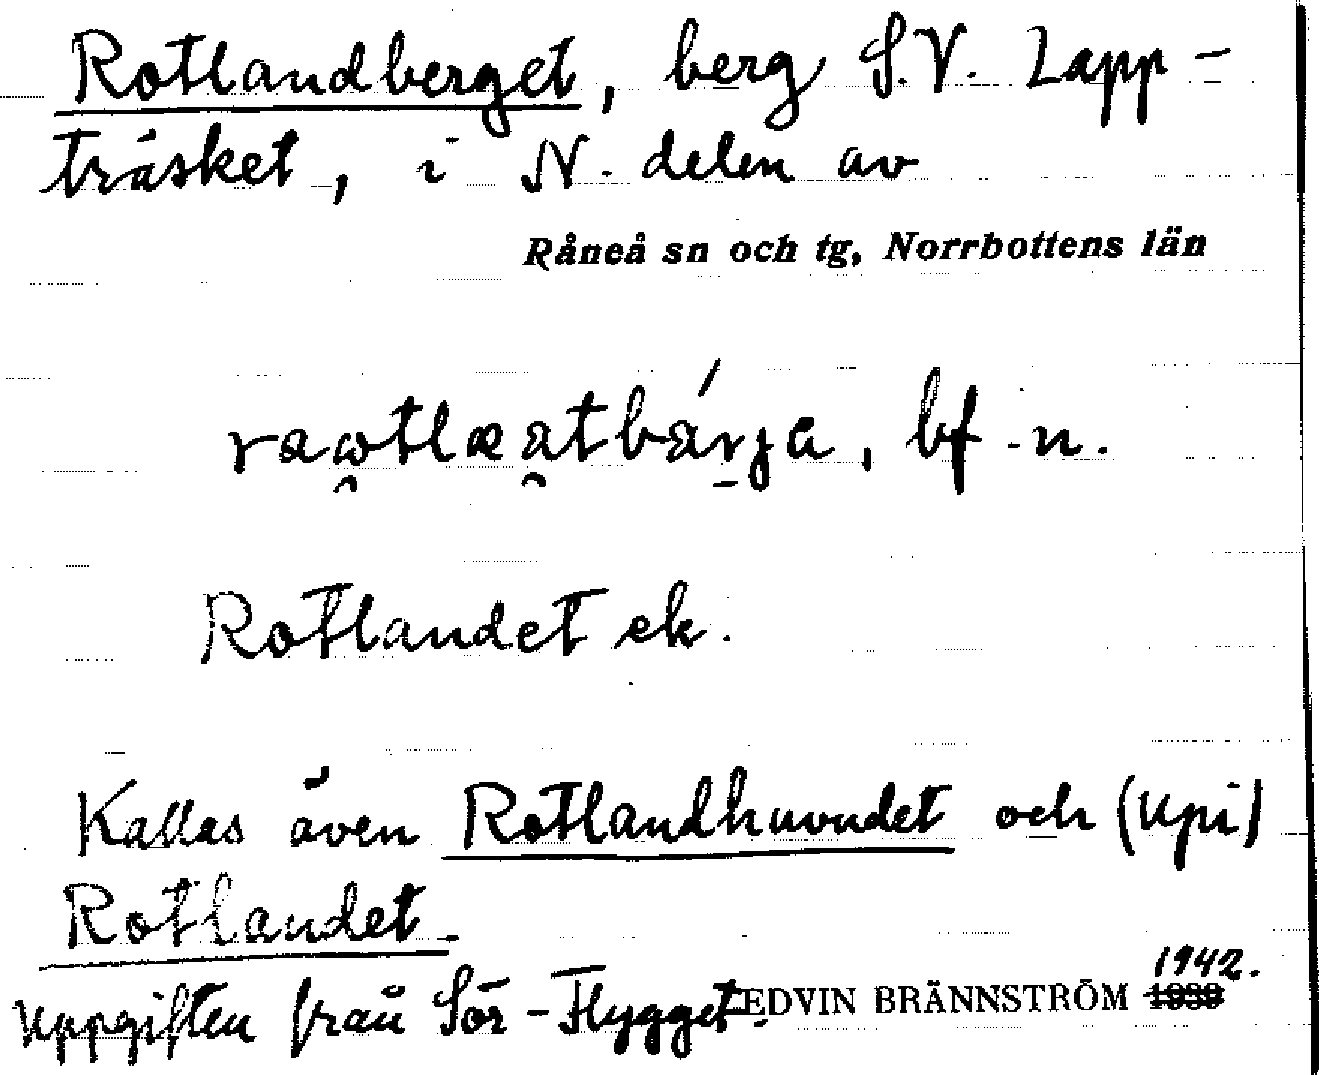 Rotlandberget, berg S.V. Lapp-
träsket, i N. delen av
Råneå sn och tg, Norrbottens län
bf. n.
Rotlandet ek.
Kallas även Rotlandhuvudet och (upi)
Rotlandet.
Uppgiften från Sör-Flygget. EDVIN BRÄNNSTRÖM 1939 1942.